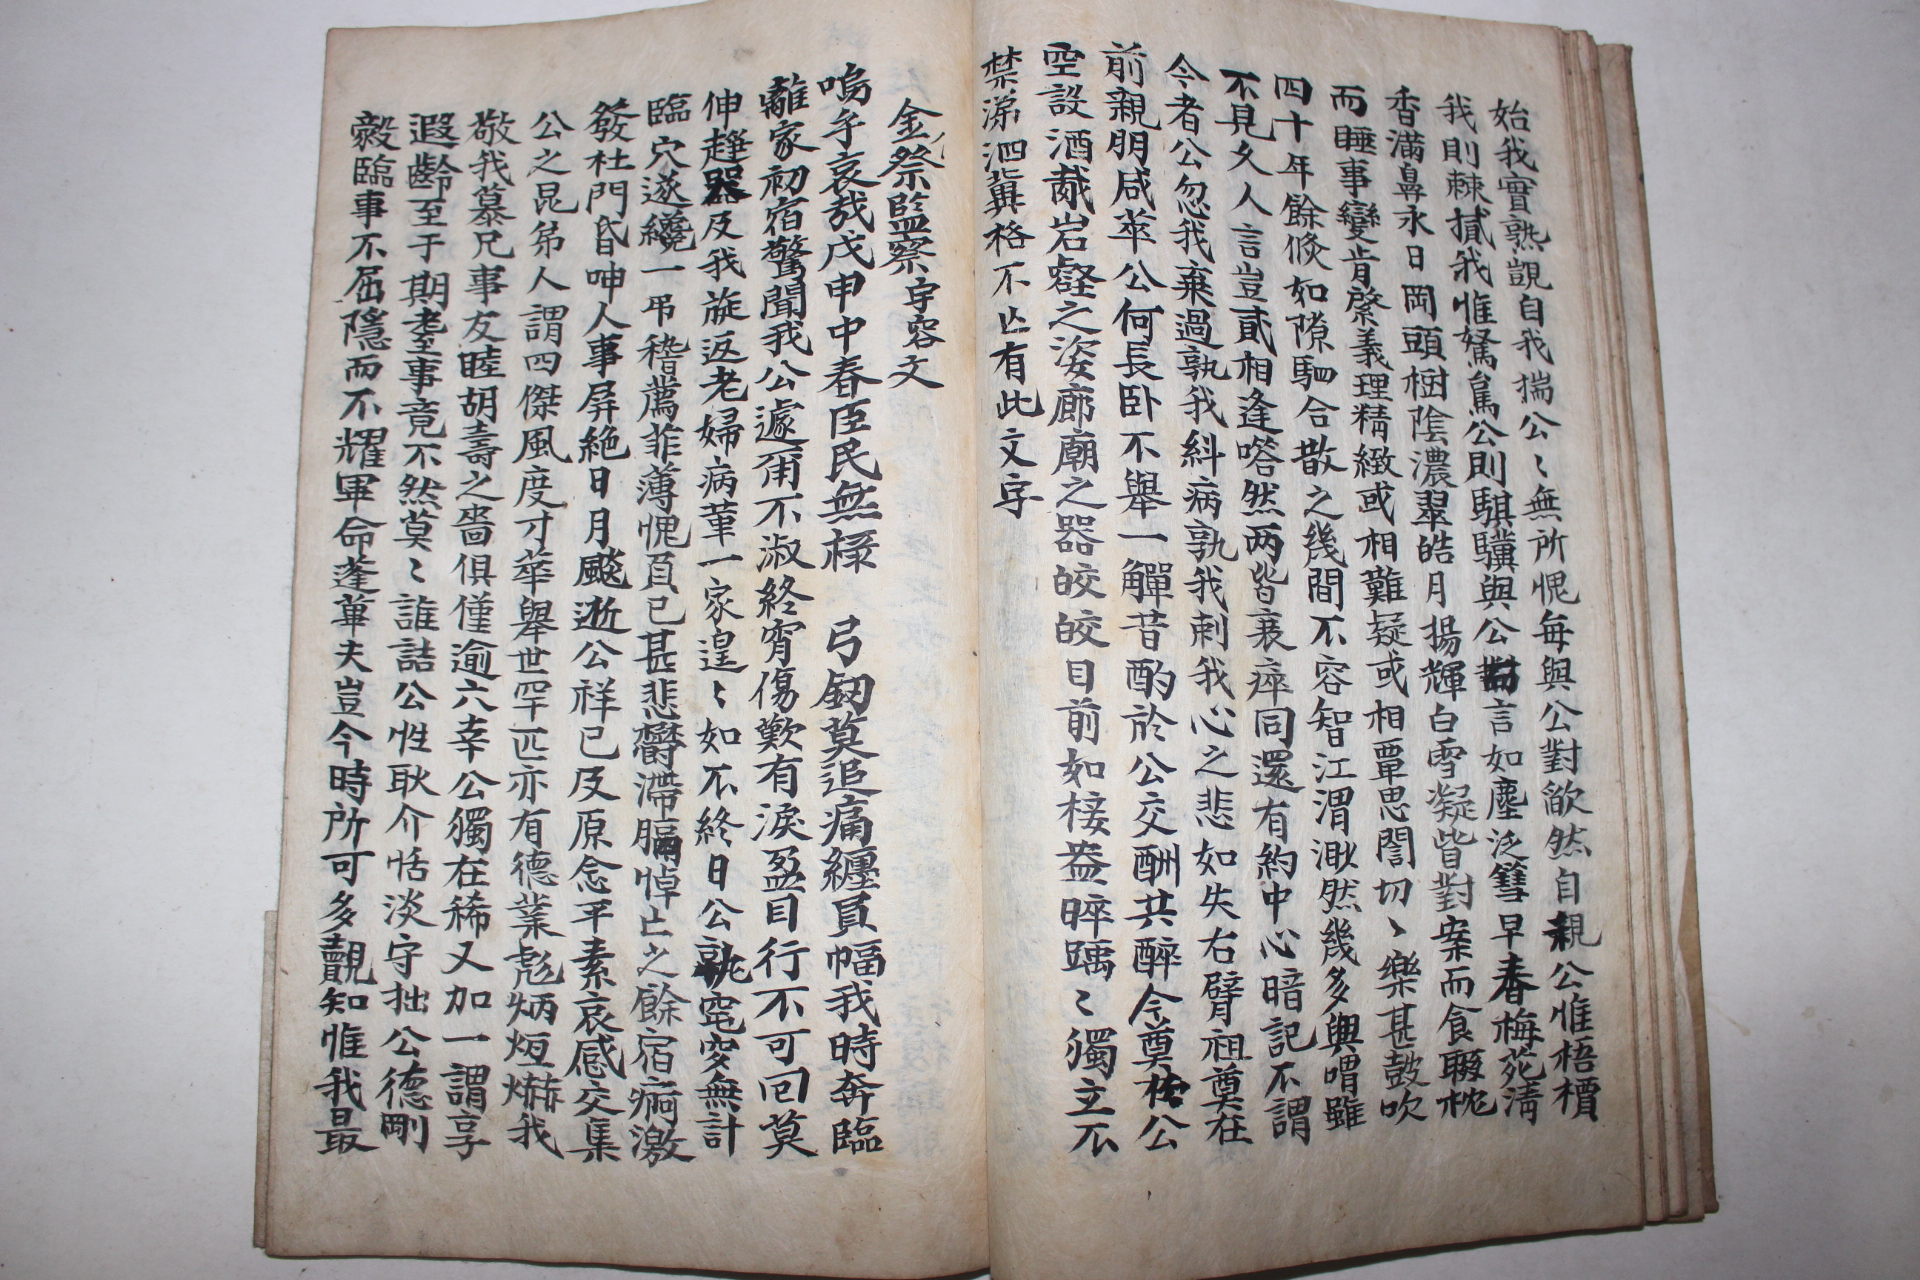 始我實孰覬自我揣公〻無所愧每與公對欿然自親公惟梧檟
我則棘樲我惟駑駘公則騏驥與公對言如塵泛篲早春梅苑淸
香滿鼻永日岡頭樹陰濃翠皓月揚輝白雪凝皆對案而食聯枕
而睡事變肯綮義理精緻或相難疑或相覃思誾切〻樂甚鼓吹
四十年餘倏如隙駟合散之幾間不容智江渭渺然幾多輿喟雖
不見久人言豈貳相逢嗒然两皆衰瘁同還有約中心暗記不謂
今者公忽我棄過孰我糾病孰我刺我心之悲如失右臂祖奠在
前親朋咸萃公何長卧不舉一觶昔酌於公交酬共醉今奠於公
空設酒胾岩壑之姿廊廟之器皎皎目前如接盎睟踽〻獨立不
禁涕泗冀格不亡有此文字
金祭監察宇容文
嗚乎哀哉戊申中春臣民無祿 弓劒莫追痛纏員幅我時奔臨
離家初宿驚聞我公遽甭不淑終宵傷歎有淚盈目行不可回莫
伸趨器及我旋返老婦病革一家遑〻如不終日公孰窀穸無計
臨穴遂纔一吊稽薦菲薄愧負已甚悲欝滯膈悼亡之餘宿痾激
發杜門昏呻人事屏絶日月飈逝公祥已及原念平素哀感交集
公之昆弟人謂四傑風度才華舉世罕匹亦有德業彪炳烜爀我
敬我慕兄事友睦胡壽之嗇俱僅逾六幸公獨在稀又加一謂享
遐齡至于期耋事竟不然莫〻誰詰公性耿介恬淡守拙公德剛
毅臨事不屈隱而不耀軍命蓬蓽夫豈今時所可多覿知惟我最